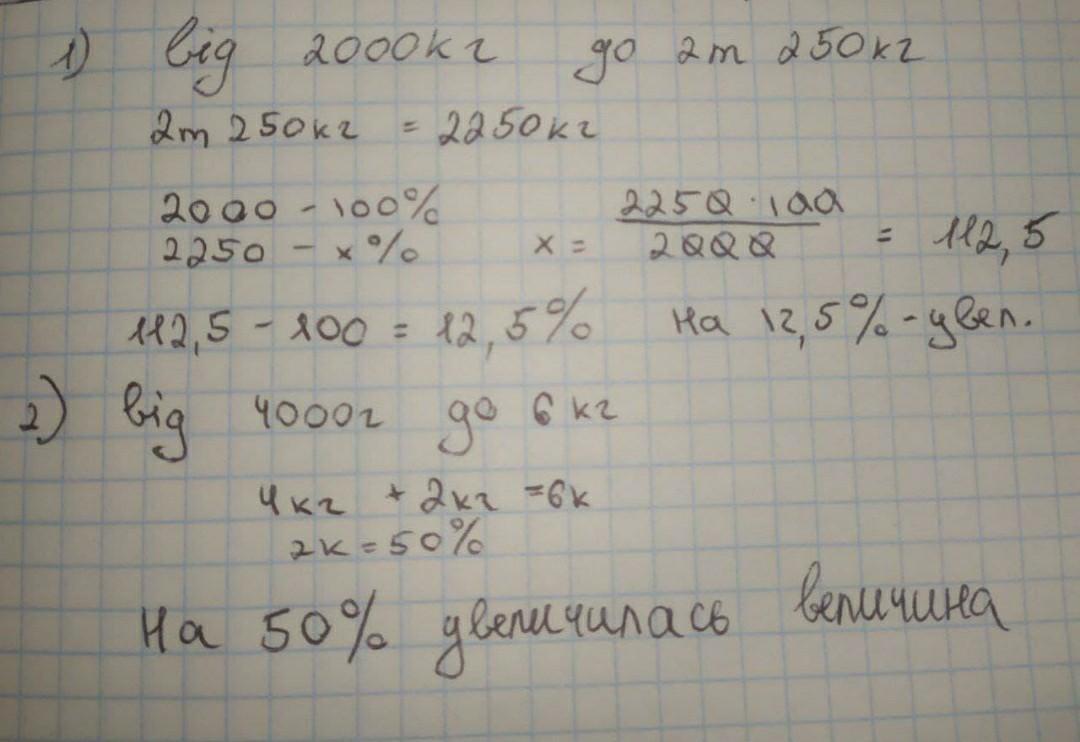 1) від 2000кг до 2т 250кг
2т 250кг = 2250кг
2000 - 100%
2250 - x%    x = 2250·100/2000 = 112,5
112,5 - 100 = 12,5% На 12,5% - увел.
2) від 4000г до 6 кг
4кг + 2кг = 6к
2к = 50%
На 50% увеличилась величина